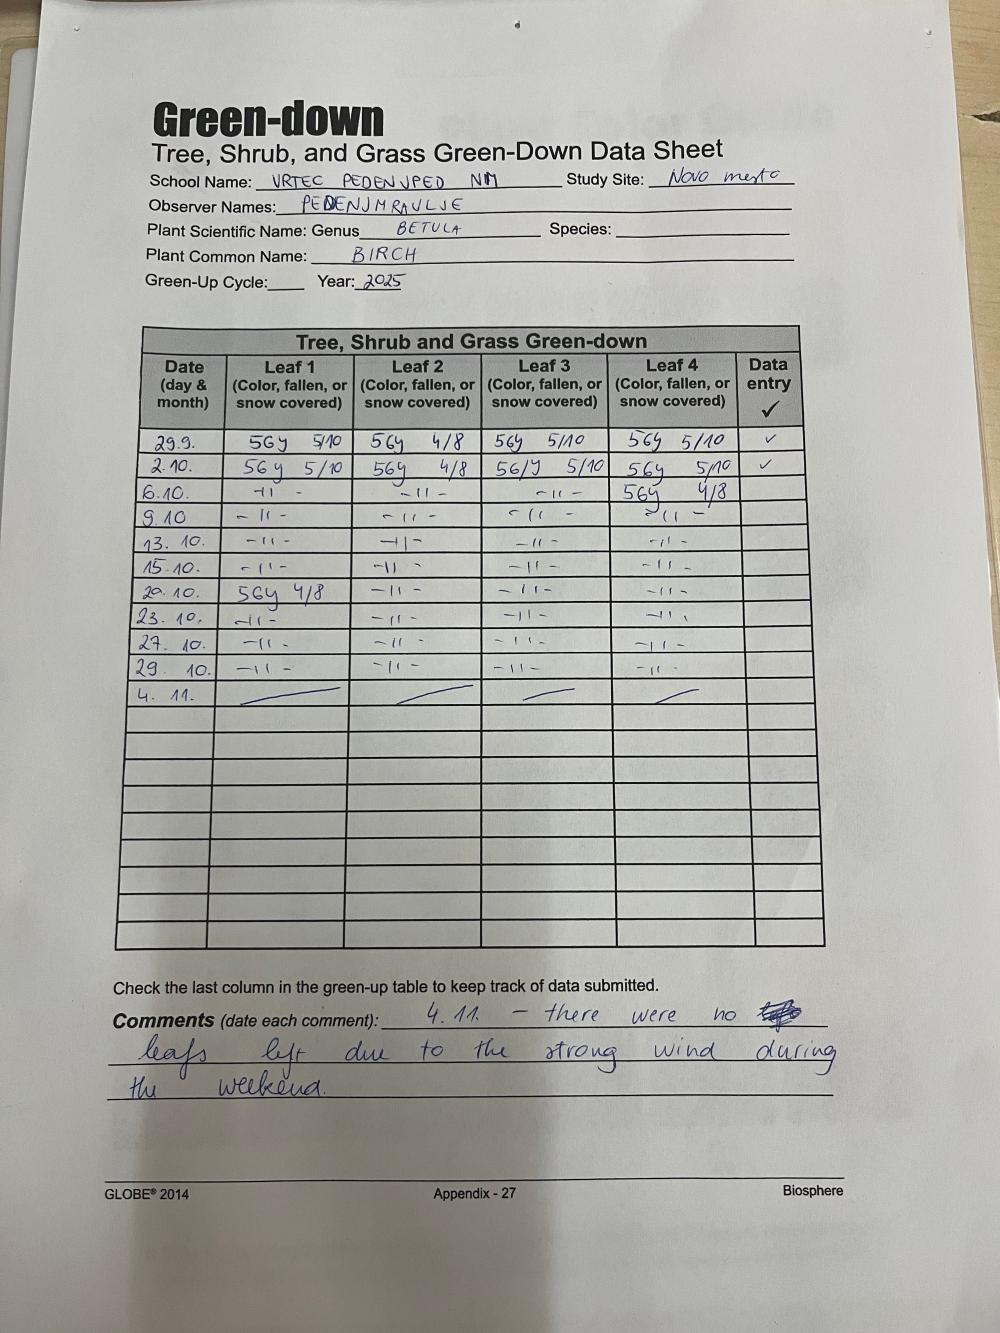 Green-down
Tree, Shrub, and Grass Green-Down Data Sheet
School Name: VRTEC PEDENJPED NM Study Site: Novo mesto
Observer Names: PEDENJMRAVLJE
Plant Scientific Name: Genus BETULA Species:
Plant Common Name: BIRCH
Green-Up Cycle: Year: 2025
Tree, Shrub and Grass Green-down
Date (day & month) Leaf 1 (Color, fallen, or snow covered) Leaf 2 (Color, fallen, or snow covered) Leaf 3 (Color, fallen, or snow covered) Leaf 4 (Color, fallen, or snow covered) Data entry ✓
29.9. 5Gy 5/10 5Gy 4/8 5Gy 5/10 5Gy 5/10 ✓
2.10. 5Gy 5/10 5Gy 4/8 5G/y 5/10 5Gy 5/10 ✓
6.10. -11- -11- -11- 5Gy 4/8
9.10 -11- -11- -11- -11-
13. 10. -11- -11- -11- -11-
15.10. -11- -11- -11- -11-
20.10. 5Gy 4/8 -11- -11- -11-
23.10. -11- -11- -11- -11-
27. 10. -11- -11- -11- -11-
29. 10. -11- -11- -11- -11-
4. 11.
Check the last column in the green-up table to keep track of data submitted.
Comments (date each comment): 4.11. - there were no
leafs left due to the strong wind during
the weekend.
GLOBE® 2014 Appendix - 27 Biosphere